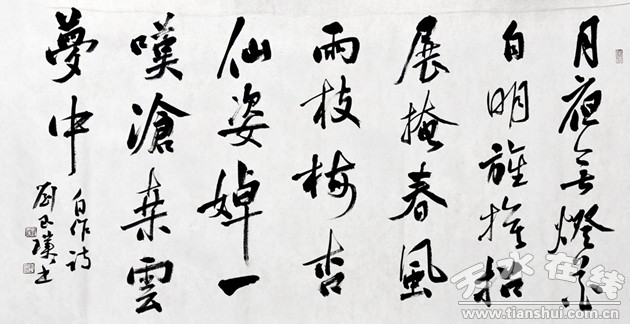 月夜無燈花
自明旌旗招
展掩春風
兩枝梅杏
仙姿婥一
嘆滄桑雲
夢中
自作詩
劉書
天水在线
www.tianshui.com.cn